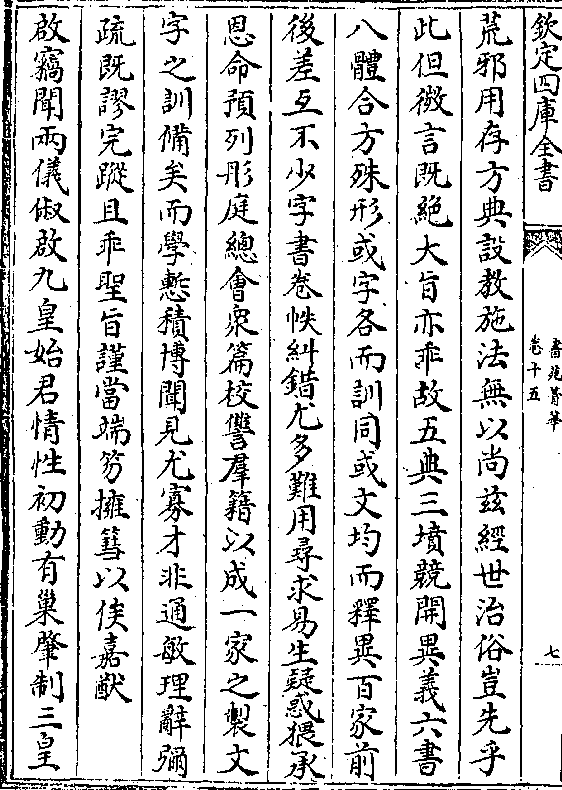 欽定四庫全書
書苑菁華
卷十五
七
荒邪用存方典設教施法無以尚兹經世治俗豈先乎
此但微言既絶大旨亦乖故五典三墳競開異義六書
八體合方殊形或字各而訓同或文均而釋異百家前
後差互不少字書卷帙糾錯尤多難用尋求易生疑惑猥承
恩命預列彤庭總會衆篇校讐羣籍以成一家之製文
字之訓備矣而學慙積博聞見尤寡才非通敏理辭彌
疏既謬完蹤且乖聖旨謹當端笏擁篲以俟嘉猷
啟竊聞兩儀俶啟九皇始君情性初動有巢肇制三皇